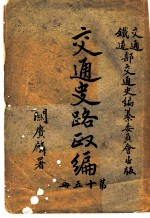 交通
鐵道部交通史編纂委員會出版
交通史路政編
第十五冊
關賡麟署